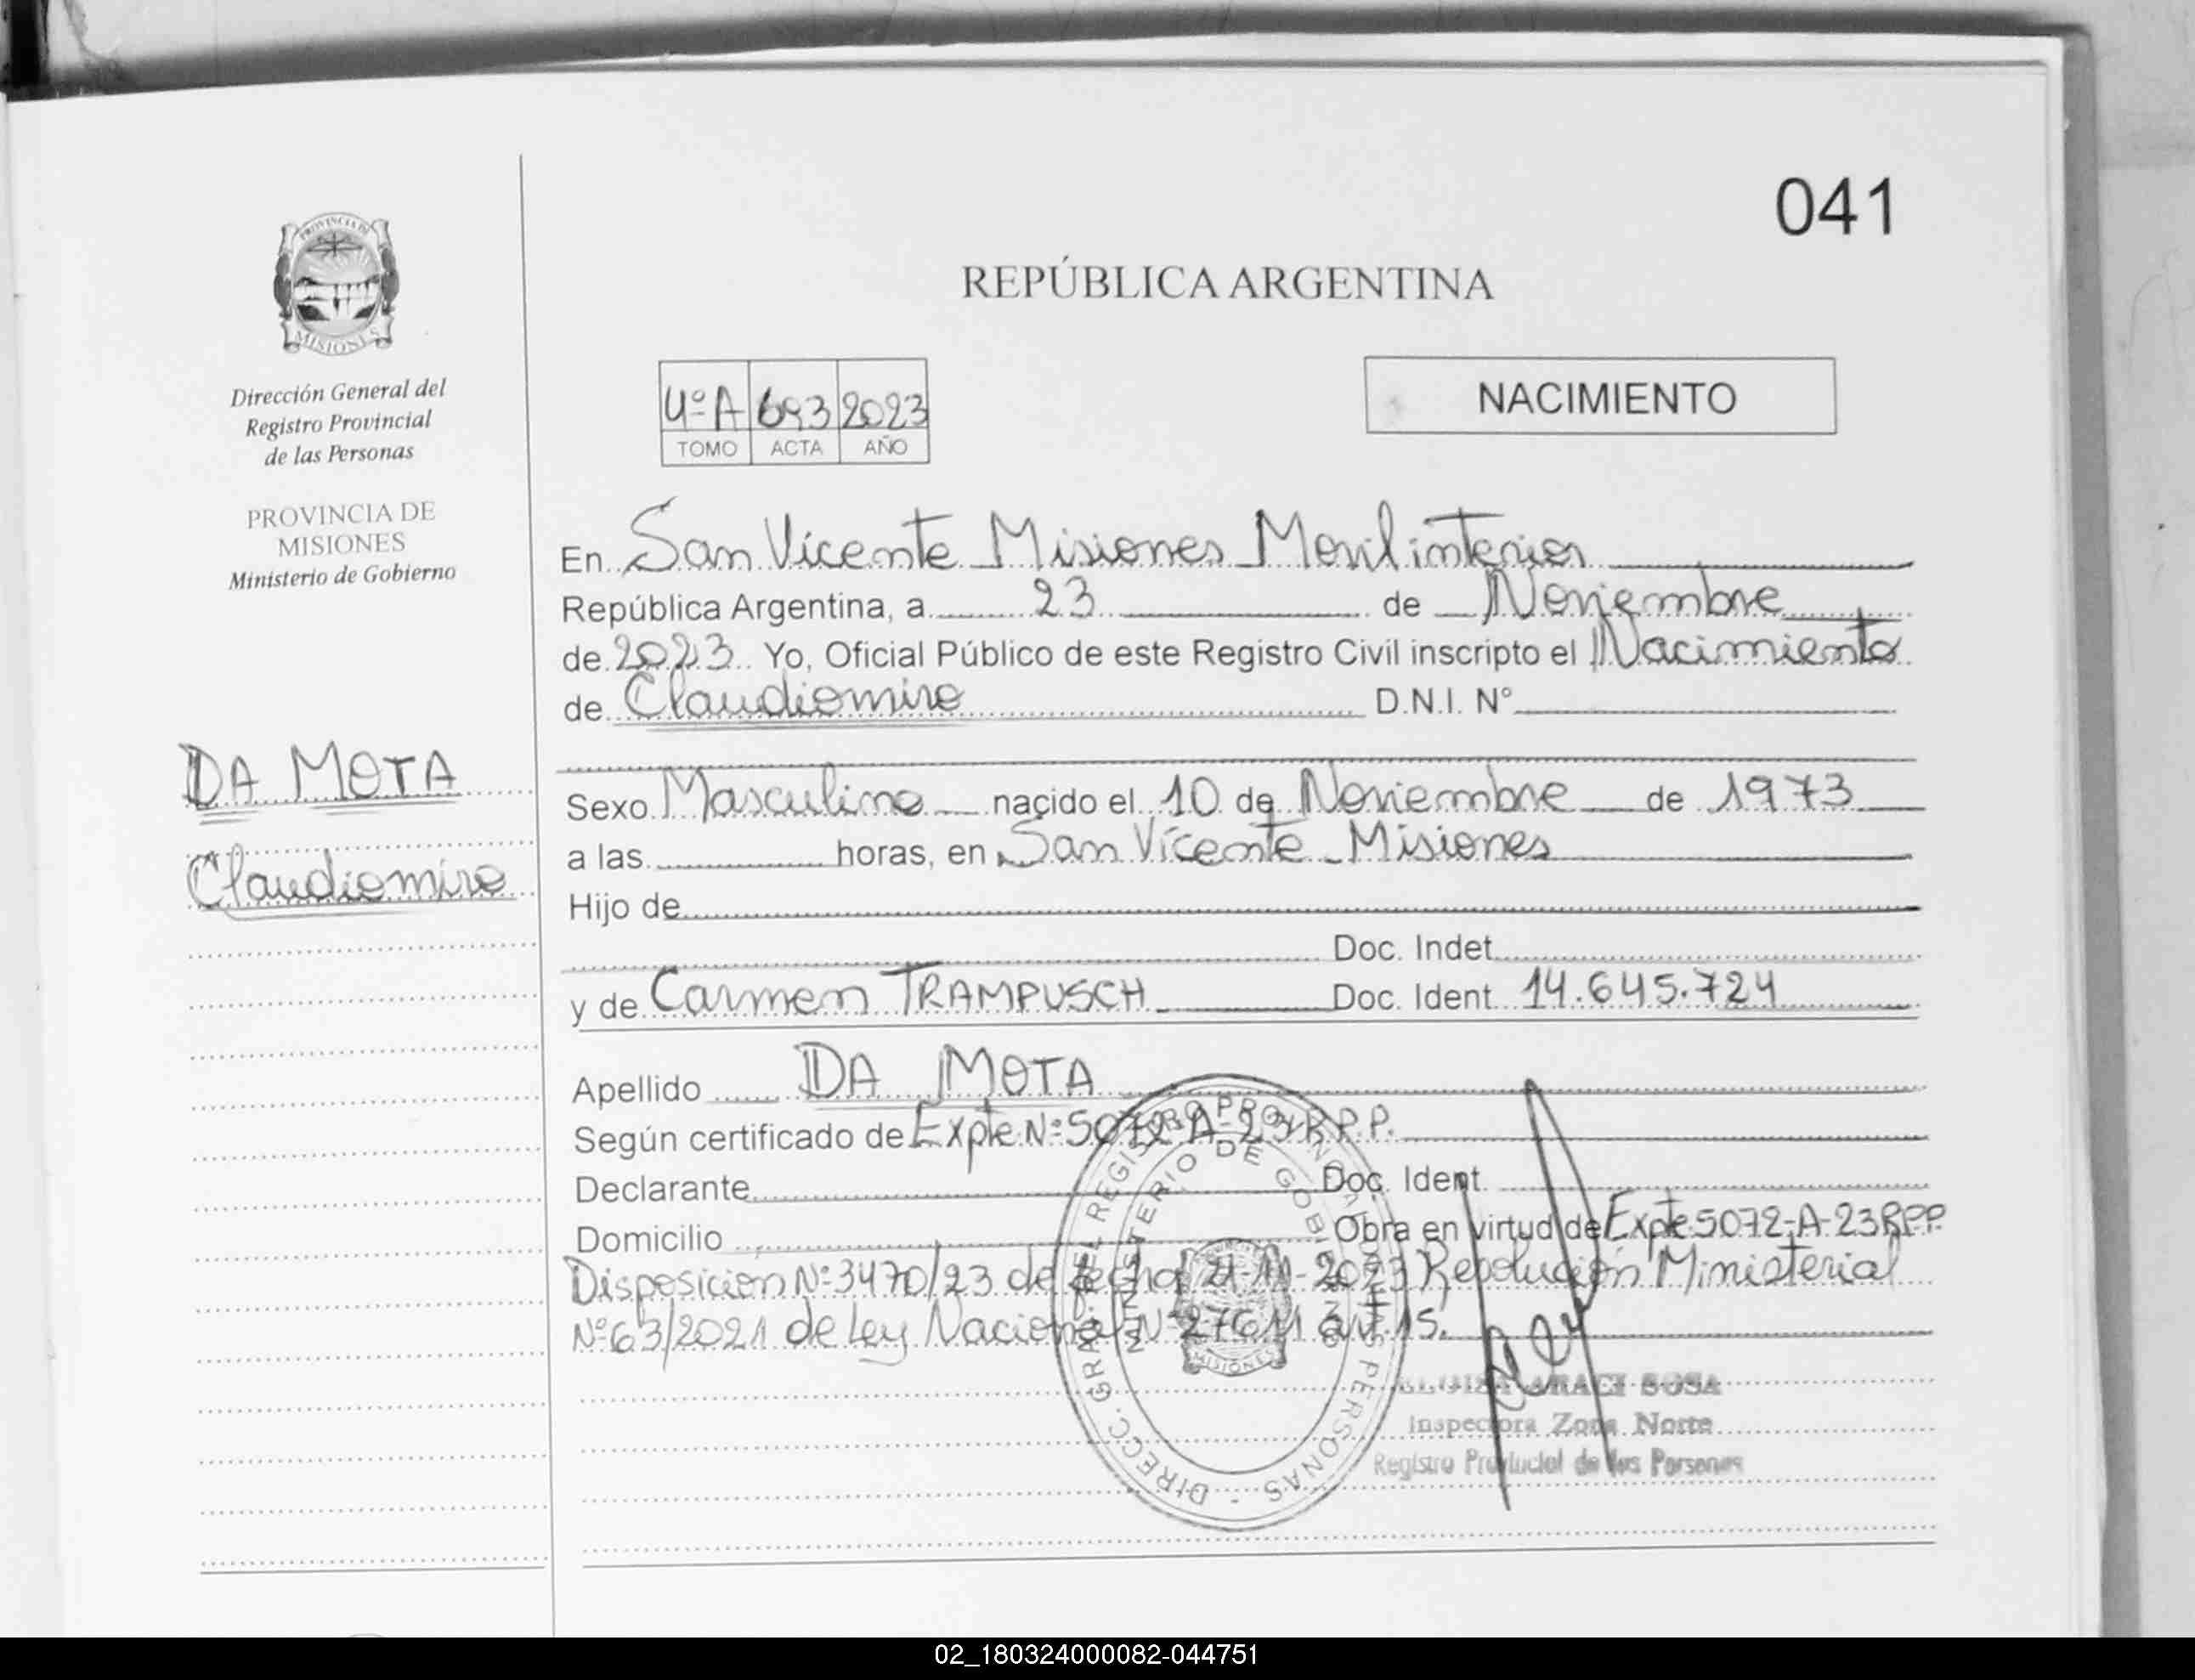 041
PROVINCIA DE
MISIONES
Dirección General del
Registro Provincial
de las Personas
PROVINCIA DE
MISIONES
Ministerio de Gobierno
DA MOTA
Claudiomiro
REPÚBLICA ARGENTINA
4º A 693 2023
TOMO ACTA AÑO
NACIMIENTO
En San Vicente Misiones Movil interior
República Argentina, a 23 de Noviembre
de 2023 Yo, Oficial Público de este Registro Civil inscripto el Nacimiento
de Claudiomiro D.N.I. Nº
Sexo Masculino nacido el 10 de Noviembre de 1973
a las horas, en San Vicente Misiones
Hijo de
Doc. Indet
y de Carmen TRAMPUSCH Doc. Ident 14.645.724
Apellido DA MOTA
Según certificado de Expte Nº 5072-A-23 R.P.P.
Declarante Doc. Ident.
Domicilio Obra en virtud de Expte 5072-A-23 R.P.P.
Disposición Nº 3470/23 de fecha 21-11-2023 Resolución Ministerial
Nº 63/2021 de Ley Nacional Nº 27611 art. 15.
DIRECC. GRAL. DEL REGISTRO PROVINCIAL DE LAS PERSONAS -
MINISTERIO DE GOBIERNO
MISIONES
ARACI SOSA
Inspectora Zona Norte
Registro Provincial de las Personas
02_180324000082-044751